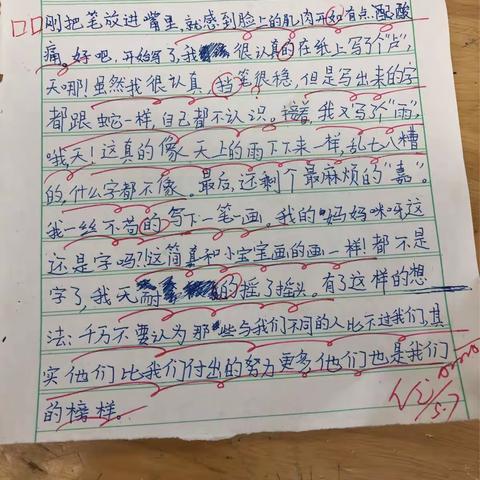 刚把笔放进嘴里,就感到脸上的肌肉开如有点酸
痛。好吧,开始写了,我很认真的在纸上写了个“卢”,
天哪!虽然我很认真,笔很稳,但是写出来的字
都跟蛇一样,自己都不认识。接着,我又写了个“雨”,
哦,天!这真的像天上的雨下下来一样,乱七八糟
的,什么字都不像。最后,还剩个最麻烦的“嘉”。
我一丝不苟的写下一笔一画。我的妈妈咪呀,这
还是字吗?!这简真和小宝宝画的画一样!都不是
字了,我无耐的摇了摇头。有了这样的想
法:千万不要认为那些与我们不同的人比不过我们,其
实他们比我们付出的努力更多,他们也是我们
的榜样。
5.7